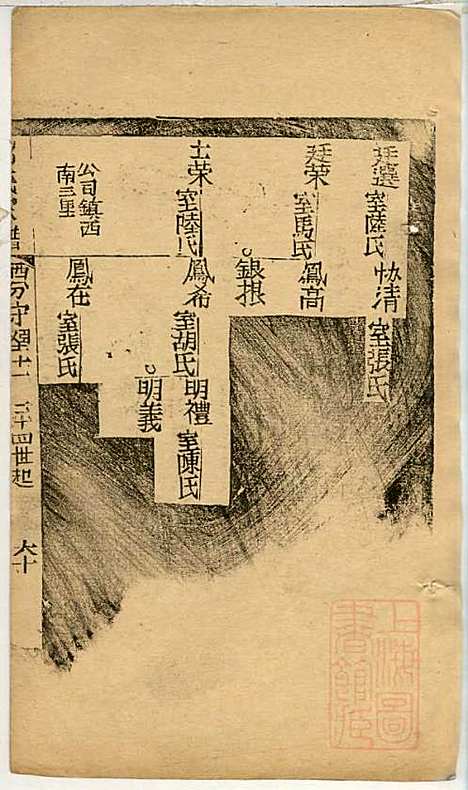 廷選 室陸氏
協清 室張氏
廷榮 室馬氏
鳳高
銀根
士榮 室陸氏
鳳希 室胡氏
明禮 室陳氏
明義
公司鎮西
南三里
鳳在 室張氏
四世起
六十
上海圖
書館藏